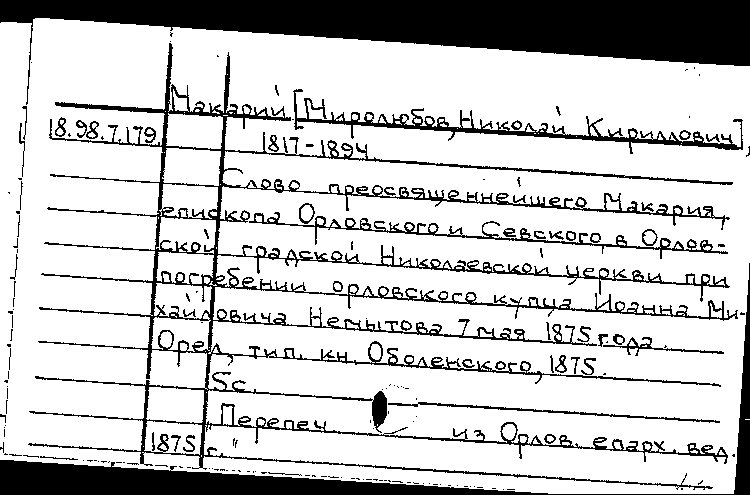 Макарий [Миролюбов, Николай Кириллович],
18.98.7.179. 1817-1894.
Слово преосвященнейшего Макария,
епископа Орловского и Севского, в Орлов-
ской градской Николаевской церкви при
погребении орловского купца Иоанна Ми-
хайловича Немытова 7 мая 1875 года.
Орел, тип. кн. Оболенского, 1875.
5с.
"Перепеч из Орлов. епарх. вед.
1875 г."